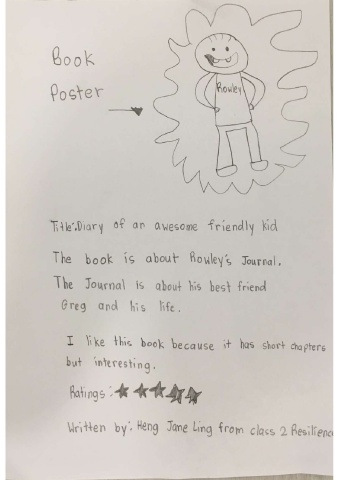 Book
Poster
Rowley
Title:Diary of an awesome friendly kid
The book is about Rowley's Journal.
The Journal is about his best friend
Greg and his life.
I like this book because it has short chapters
but interesting.
Ratings:★★★★★
Written by: Heng Jane Ling from class 2 Resilience